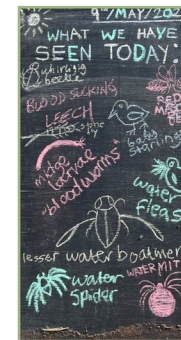 9TH/MAY/202
WHAT WE HAVE
SEEN TODAY:
Whirligig
beetle
BLOOD SUCKING
LEECH
RED
baby
starling
midge
larvae
"bloodworms"
water
fleas
lesser water boatmen
water
spider
WATER MIT